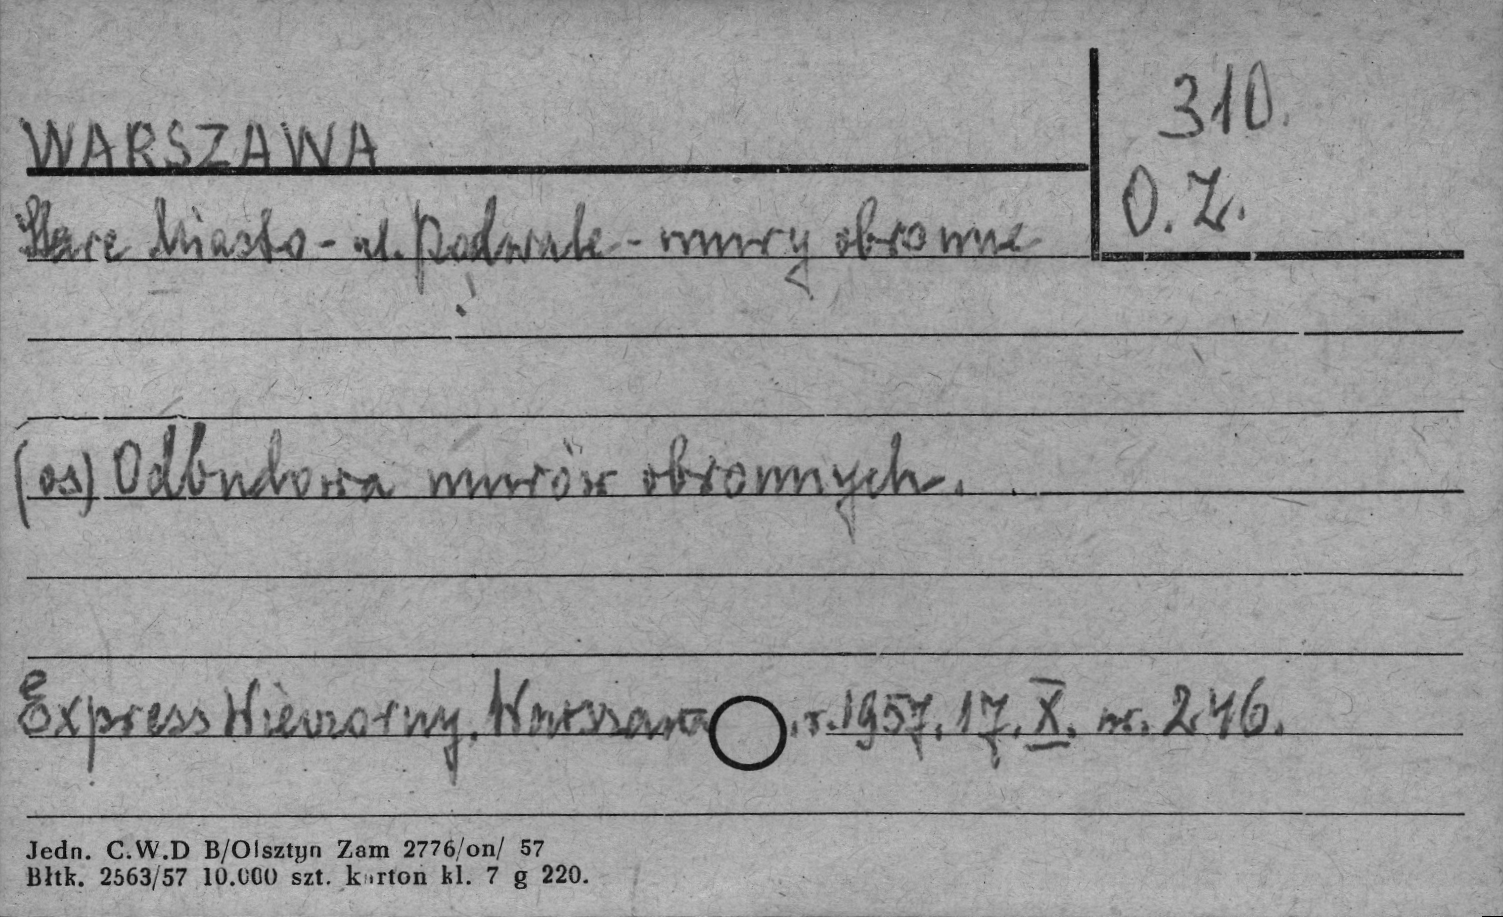 310.
WARSZAWA
O.Z.
Stare Miasto - ul. Podwale - mury obronne
(os) Odbudowa murów obronnych.
Express Wieczorny. Warszawa . r. 1957. 17. X. nr. 246.
Jedn. C.W.D B/Olsztyn Zam 2776/on/ 57
Błtk. 2563/57 10.000 szt. karton kl. 7 g 220.